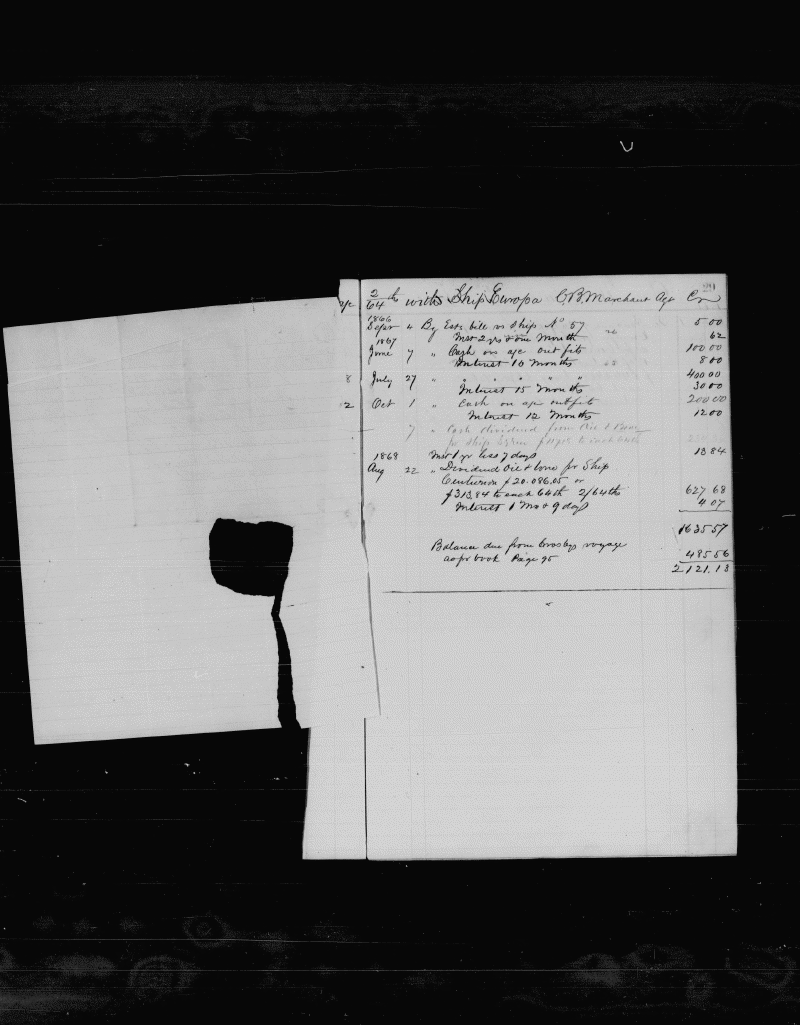 29
2/64th with Ship Europa C.B. Marchant Agt Cr
1866
Sepr 4 By Ests bill vs Ship No 57 5 00
1867 Inst 2 yrs & one Month 62
June 7 " Cash on a/c outfits 100 00
Interest 16 months 8 00
July 27 " " " " 400 00
Interest 15 months 30 00
Oct 1 " Cash on a/c outfits 200 00
Interest 12 Months 12 00
7 " Cash dividend from Oil & Bone
pr Ship to each 64th
1868 Inst 1 yr less 7 days 13 84
Aug 22 " Dividend Oil & bone pr Ship
Centurion $20.086,05 or
$313,84 to each 64th 2/64ths 627 68
Interest 1 Mo & 9 days 4 07
1635 57
Balance due from Crosbys voyage
as pr book Page 95 485 56
2 121,13